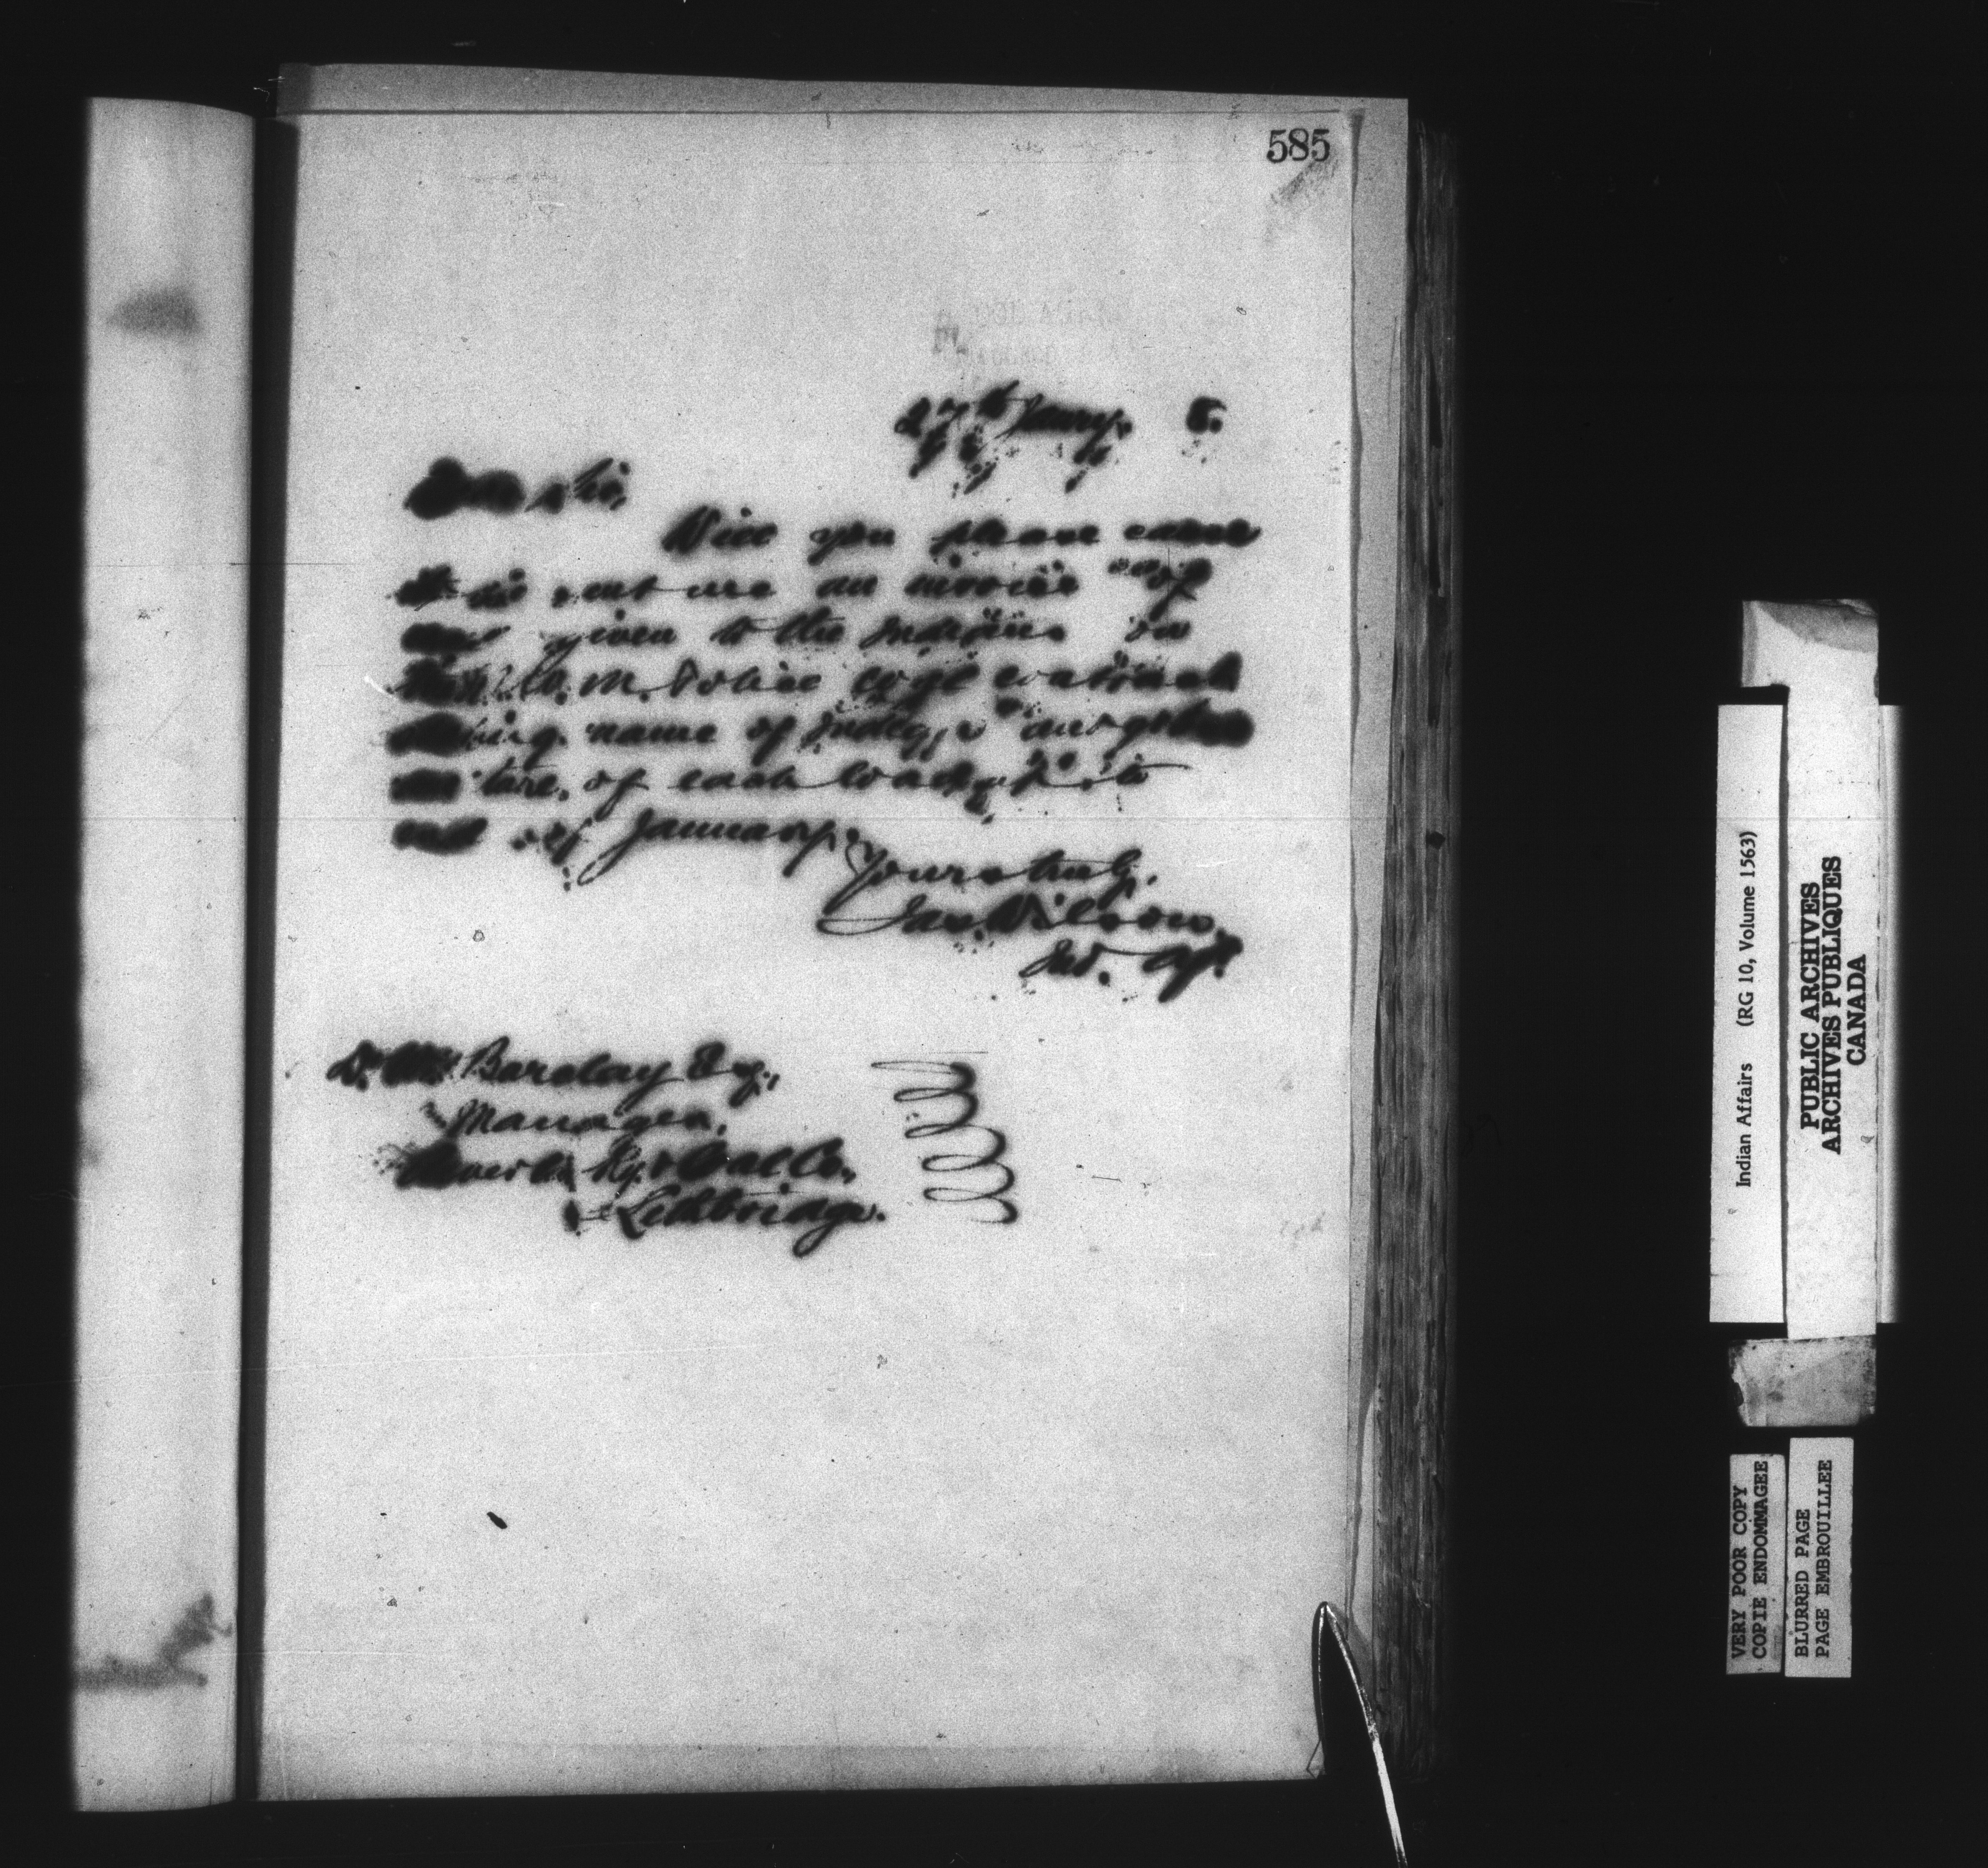 585
27th Jany. 8.
Dear Sir,
Will you please cause
to be sent me an invoice of
coal given to the Indians on
the N.W.M. Police coal contract
giving name of Indians and
of each load up to
end of January.
Yours truly,
Jas. Wilson.
Ind. Agt.
Barclay Esq.,
Manager,
Ry. & Coal Co.
Lethbridge.
Indian Affairs (RG 10, Volume 1563)
PUBLIC ARCHIVES
ARCHIVES PUBLIQUES
CANADA
VERY POOR COPY
COPIE ENDOMMAGEE
BLURRED PAGE
PAGE EMBROUILLEE